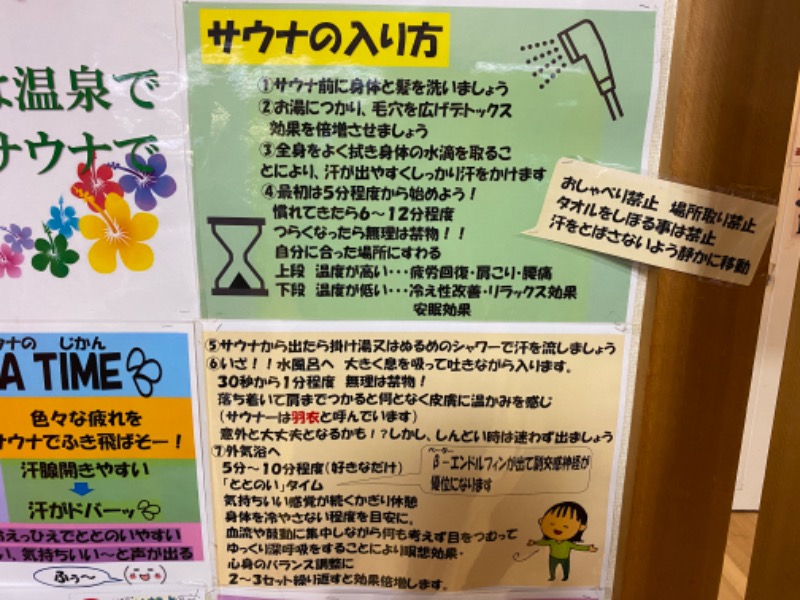 は温泉で
サウナで
サウナの入り方
①サウナ前に身体と髪を洗いましょう
②お湯につかり、毛穴を広げデトックス
効果を倍増させましょう
③全身をよく拭き身体の水滴を取るこ
とにより、汗が出やすくしっかり汗をかけます
④最初は5分程度から始めよう！
慣れてきたら6～12分程度
つらくなったら無理は禁物！！
自分に合った場所にすわる
上段 温度が高い・・・疲労回復・肩こり・腰痛
下段 温度が低い・・・冷え性改善・リラックス効果
安眠効果
おしゃべり禁止 場所取り禁止
タオルをしぼる事は禁止
汗をとばさないよう静かに移動
ウナの じかん
A TIME
色々な疲れを
サウナでふき飛ばそー！
汗腺開きやすい
汗がドバーッ
えっひえでととのいやすい
い、気持ちいい～と声が出る
ふぅ～
⑤サウナから出たら掛け湯又はぬるめのシャワーで汗を流しましょう
⑥いざ！！水風呂へ 大きく息を吸って吐きながら入ります。
30秒から1分程度 無理は禁物！
落ち着いて肩までつかると何となく皮膚に温かみを感じ
（サウナーは羽衣と呼んでいます）
意外と大丈夫となるかも！？しかし、しんどい時は迷わず出ましょう
⑦外気浴へ
5分～10分程度（好きなだけ）
「ととのい」タイム
ベーター
β－エンドルフィンが出て副交感神経が
優位になります
気持ちいい感覚が続くかぎり休憩
身体を冷やさない程度を目安に。
血流や鼓動に集中しながら何も考えず目をつむって
ゆっくり深呼吸をすることにより瞑想効果・
心身のバランス調整に
2～3セット繰り返すと効果倍増します。